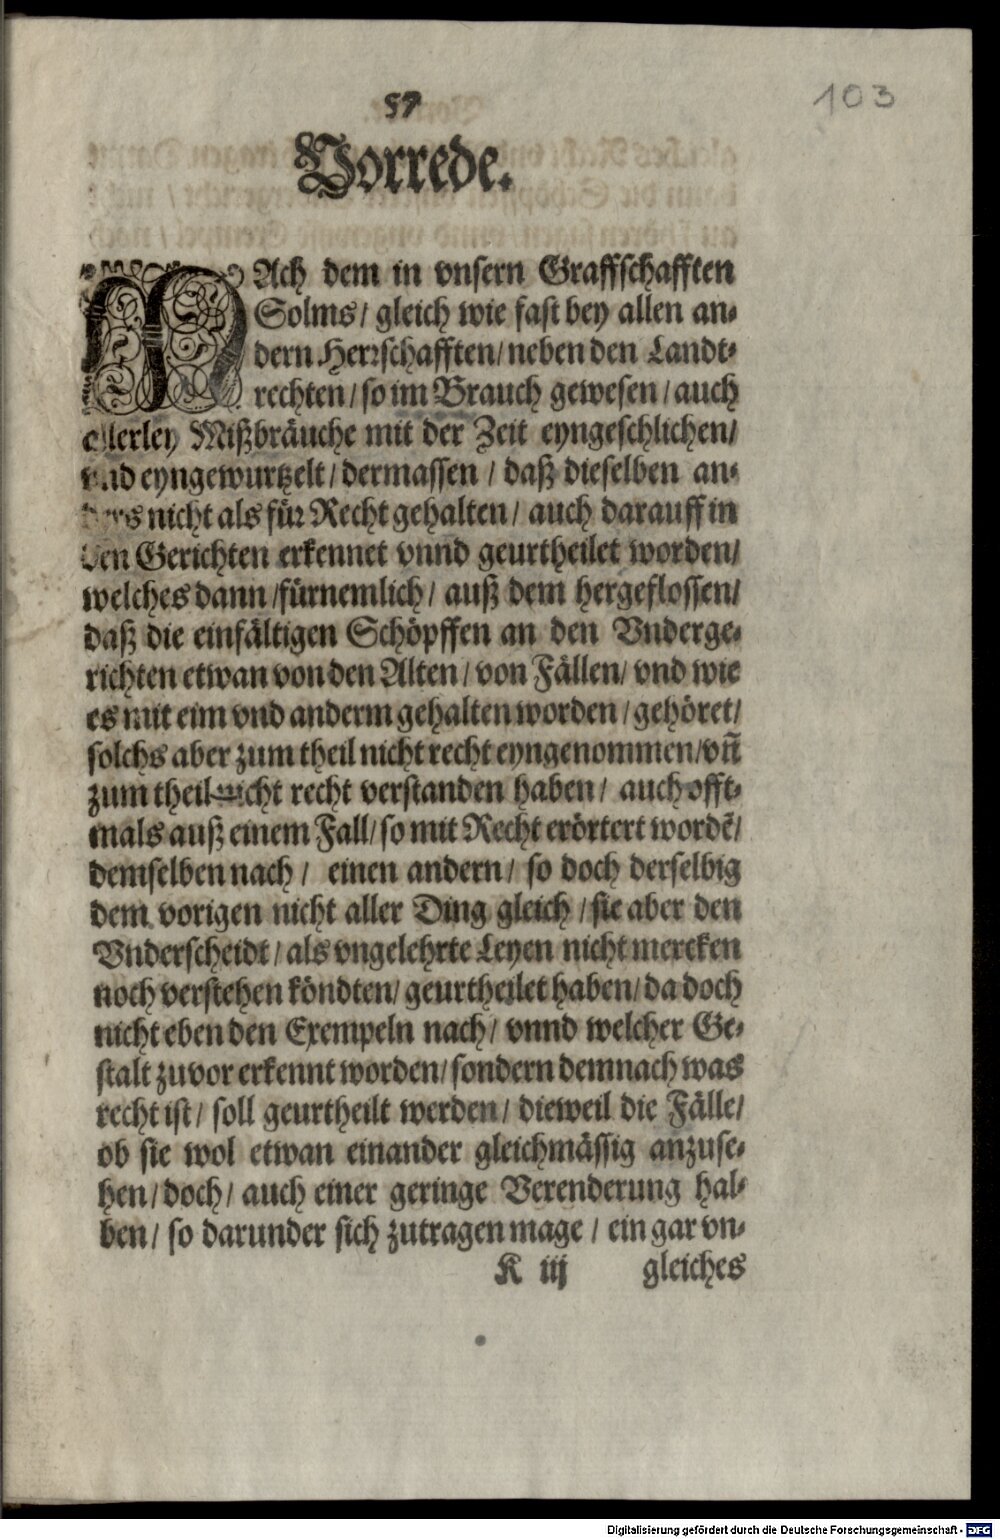 57
103
Vorrede.
NAch dem in vnsern Graffschafften
Solms/ gleich wie fast bey allen an-
dern Herrschafften/ neben den Landt-
rechten/ so im Brauch gewesen/ auch
allerley Mißbräuche mit der Zeit eyngeschlichen/
vnd eyngewurtzelt/ dermassen/ daß dieselben an-
ders nicht als für Recht gehalten/ auch darauff in
den Gerichten erkennet vnnd geurtheilet worden/
welches dann/ fürnemlich/ auß dem hergeflossen/
daß die einfältigen Schöpffen an den Vnderge-
richten etwan von den Alten/ von Fällen/ vnd wie
es mit eim vnd anderm gehalten worden/ gehöret/
solchs aber zum theil nicht recht eyngenommen/ vñ
zum theil nicht recht verstanden haben/ auch offt-
mals auß einem Fall/ so mit Recht erörtert wordẽ/
demselben nach/ einen andern/ so doch derselbig
dem vorigen nicht aller Ding gleich/ sie aber den
Vnderscheidt/ als vngelehrte Leyen nicht mercken
noch verstehen köndten/ geurtheilet haben/ da doch
nicht eben den Exempeln nach/ vnnd welcher Ge-
stalt zuvor erkennt worden/ sondern demnach was
recht ist/ soll geurtheilt werden/ dieweil die Fälle/
ob sie wol etwan einander gleichmässig anzuse-
hen/ doch/ auch einer geringe Verenderung hal-
ben/ so darunder sich zutragen mage/ ein gar vn-
K iij gleiches
Digitalisierung gefördert durch die Deutsche Forschungsgemeinschaft - DFG